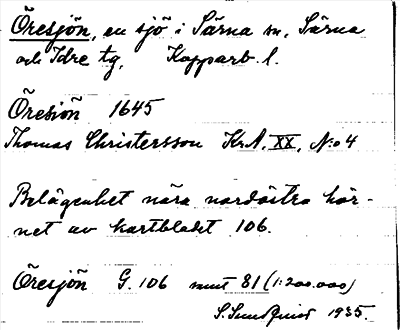 Öresjön, en sjö i Särna sn, Särna
och Idre tg, Kopparb. l.
Öresiön 1645
Thomas Christersson Kr.A. XX, N:o 4
Belägenhet nära nordöstra hör-
net av kartbladet 106.
Öresjön G. 106 samt 81 (1:200.000)
1935.